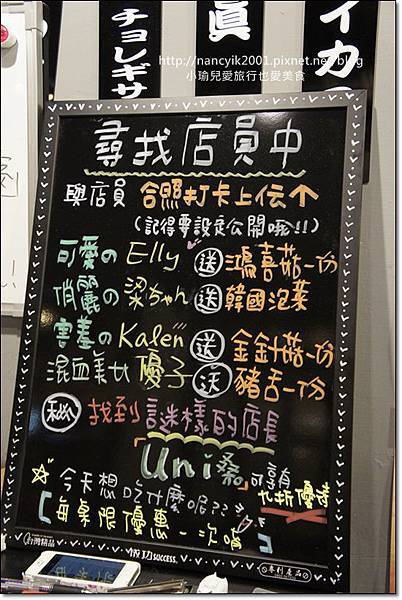 チョレギサ
眞
イカ
http://nancyik2001.pixnet.net/blog
小瑜兒愛旅行也愛美食
尋找店員中
與店員 合照打卡上伝↑
(記得要設定公開哦!!)
可愛の Elly 送 鴻喜菇一份
俏麗の 梁ちゃん 送 韓國泡菜
害羞の Kalen 送 金針菇一份
混血美女 優子 送 豬舌一份
秘 找到謎樣的店長
「Uni桑」可享有
九折優待
☆今天想吃什麼呢??
【每桌限優惠一次唷】
台灣精品
成功SUCCESS.
專利產品